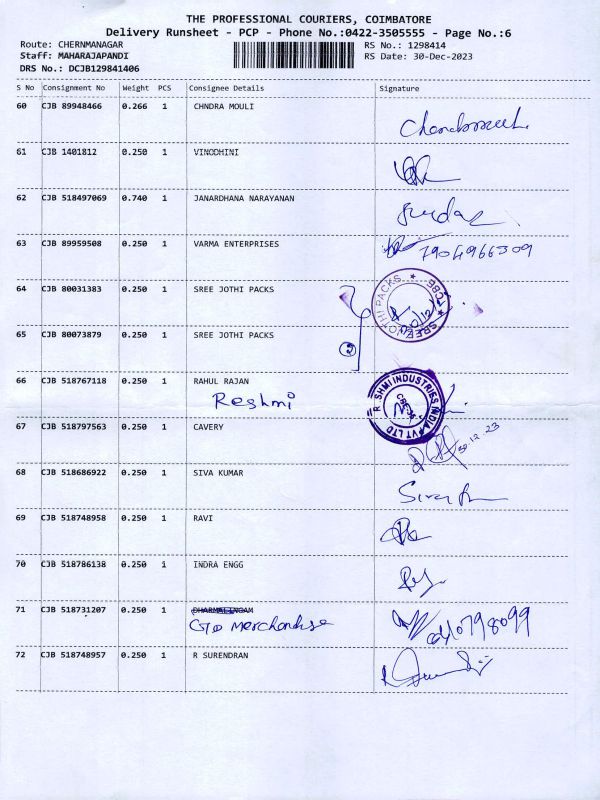 THE PROFESSIONAL COURIERS, COIMBATORE
Delivery Runsheet - PCP - Phone No.:0422-3505555 - Page No.:6
Route: CHERNMANAGAR RS No.: 1298414
Staff: MAHARAJAPANDI RS Date: 30-Dec-2023
DRS No.: DCJB129841406
S No Consignment No Weight PCS Consignee Details Signature
60 CJB 89948466 0.266 1 CHNDRA MOULI
61 CJB 1401812 0.250 1 VINODHINI
62 CJB 518497069 0.740 1 JANARDHANA NARAYANAN
63 CJB 89959508 0.250 1 VARMA ENTERPRISES 7904966309
64 CJB 80031383 0.250 1 SREE JOTHI PACKS
SREE JOTHI PACKS ★ CBE ★
65 CJB 80073879 0.250 1 SREE JOTHI PACKS
2
66 CJB 518767118 0.250 1 RAHUL RAJAN
Reshmi
RESHMI INDUSTRIES INDIA PVT LTD
67 CJB 518797563 0.250 1 CAVERY
30.12.23
68 CJB 518686922 0.250 1 SIVA KUMAR
69 CJB 518748958 0.250 1 RAVI
70 CJB 518786138 0.250 1 INDRA ENGG
71 CJB 518731207 0.250 1 DHARMALINGAM
Merchandise
72 CJB 518748957 0.250 1 R SURENDRAN